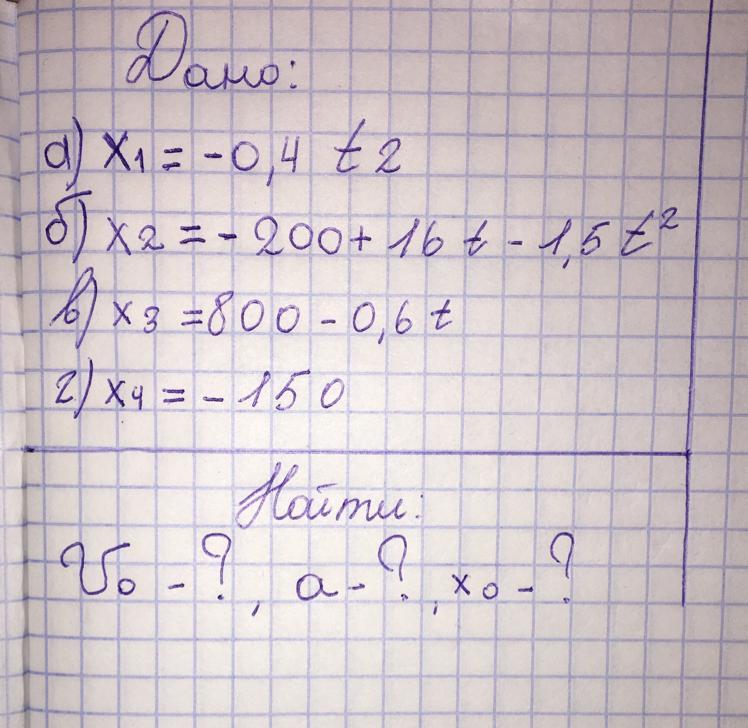 Дано:
а) x1 = -0,4 t2
б) x2 = - 200 + 16 t - 1,5 t²
в) x3 = 800 - 0,6 t
г) x4 = - 150
Найти:
V₀ - ?, a - ?, x₀ - ?